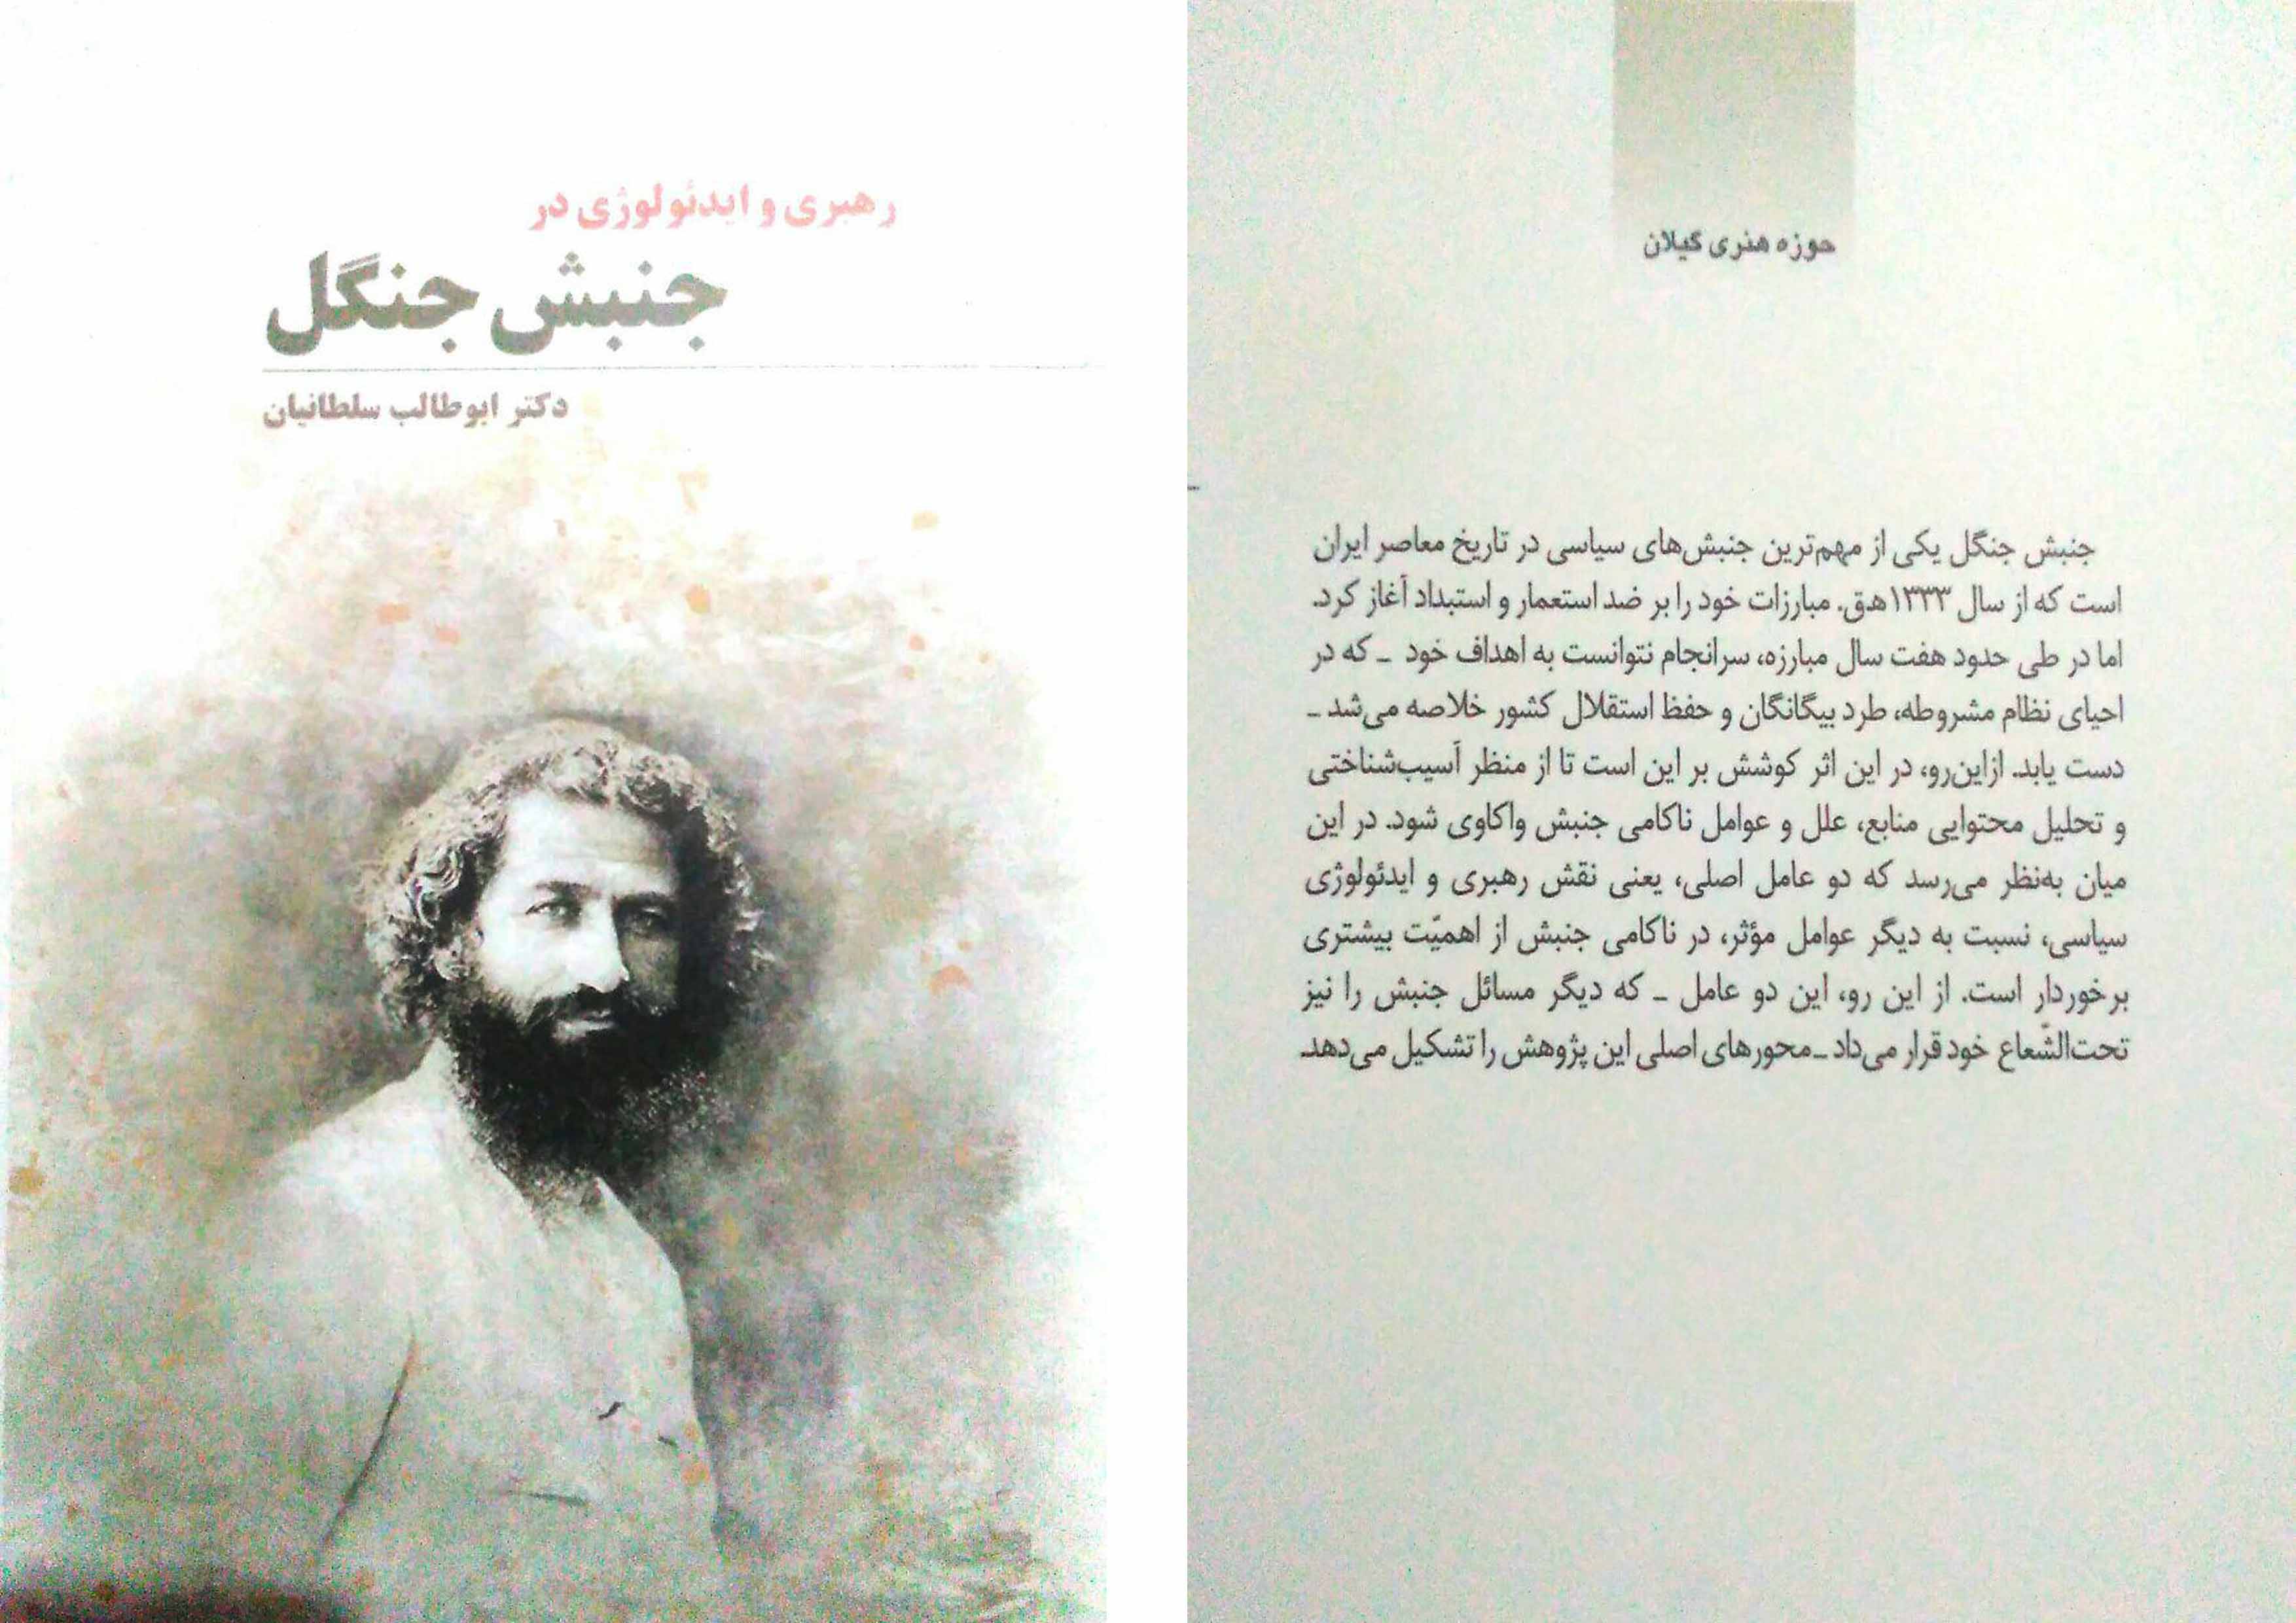 رهبری و ایدئولوژی در
جنبش جنگل
دکتر ابوطالب سلطانیان
حوزه هنری گیلان
جنبش جنگل یکی از مهم‌ترین جنبش‌های سیاسی در تاریخ معاصر ایران
است که از سال ۱۳۳۳ه‍.ق. مبارزات خود را بر ضد استعمار و استبداد آغاز کرد.
اما در طی حدود هفت سال مبارزه، سرانجام نتوانست به اهداف خود ـ که در
احیای نظام مشروطه، طرد بیگانگان و حفظ استقلال کشور خلاصه می‌شد ـ
دست یابد. ازاین‌رو، در این اثر کوشش بر این است تا از منظر آسیب‌شناختی
و تحلیل محتوایی منابع، علل و عوامل ناکامی جنبش واکاوی شود. در این
میان به‌نظر می‌رسد که دو عامل اصلی، یعنی نقش رهبری و ایدئولوژی
سیاسی، نسبت به دیگر عوامل مؤثر، در ناکامی جنبش از اهمیّت بیشتری
برخوردار است. از این رو، این دو عامل ـ که دیگر مسائل جنبش را نیز
تحت‌الشّعاع خود قرار می‌داد ـ محورهای اصلی این پژوهش را تشکیل می‌دهد.